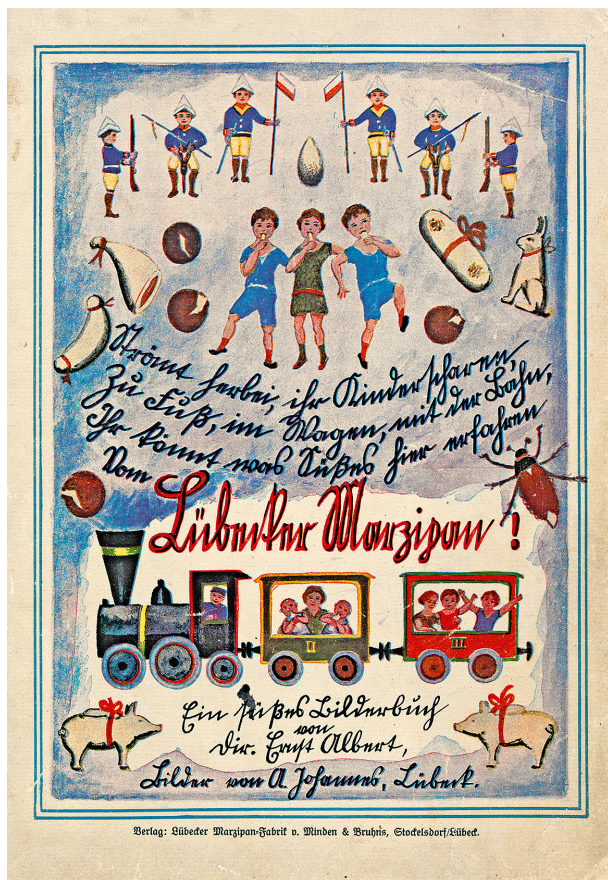 Strömt herbei, ihr Kinderscharen,
Zu Fuß, im Wagen, mit der Bahn,
Ihr könnt was Süßes hier erfahren
Vom
Lübecker Marzipan!
II
III
Ein süßes Bilderbuch
von
Dir. Ernst Albert,
Bilder von A. Johannes, Lübeck.
Verlag: Lübecker Marzipan-Fabrik v. Minden & Bruhns, Stockelsdorf/Lübeck.